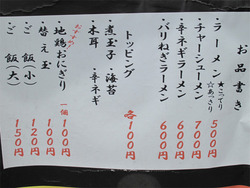 お品書き
・ラーメン ★こってり ☆あっさり 500円
・チャーシューメン 700円
・辛ネギラーメン 600円
・バリねぎラーメン 600円
トッピング
・煮玉子・海苔
・木耳・辛ネギ
各100円
おすすめ
・地鶏おにぎり 一個100円
・替え玉 100円
・ご飯(小) 120円
・ご飯(大) 150円